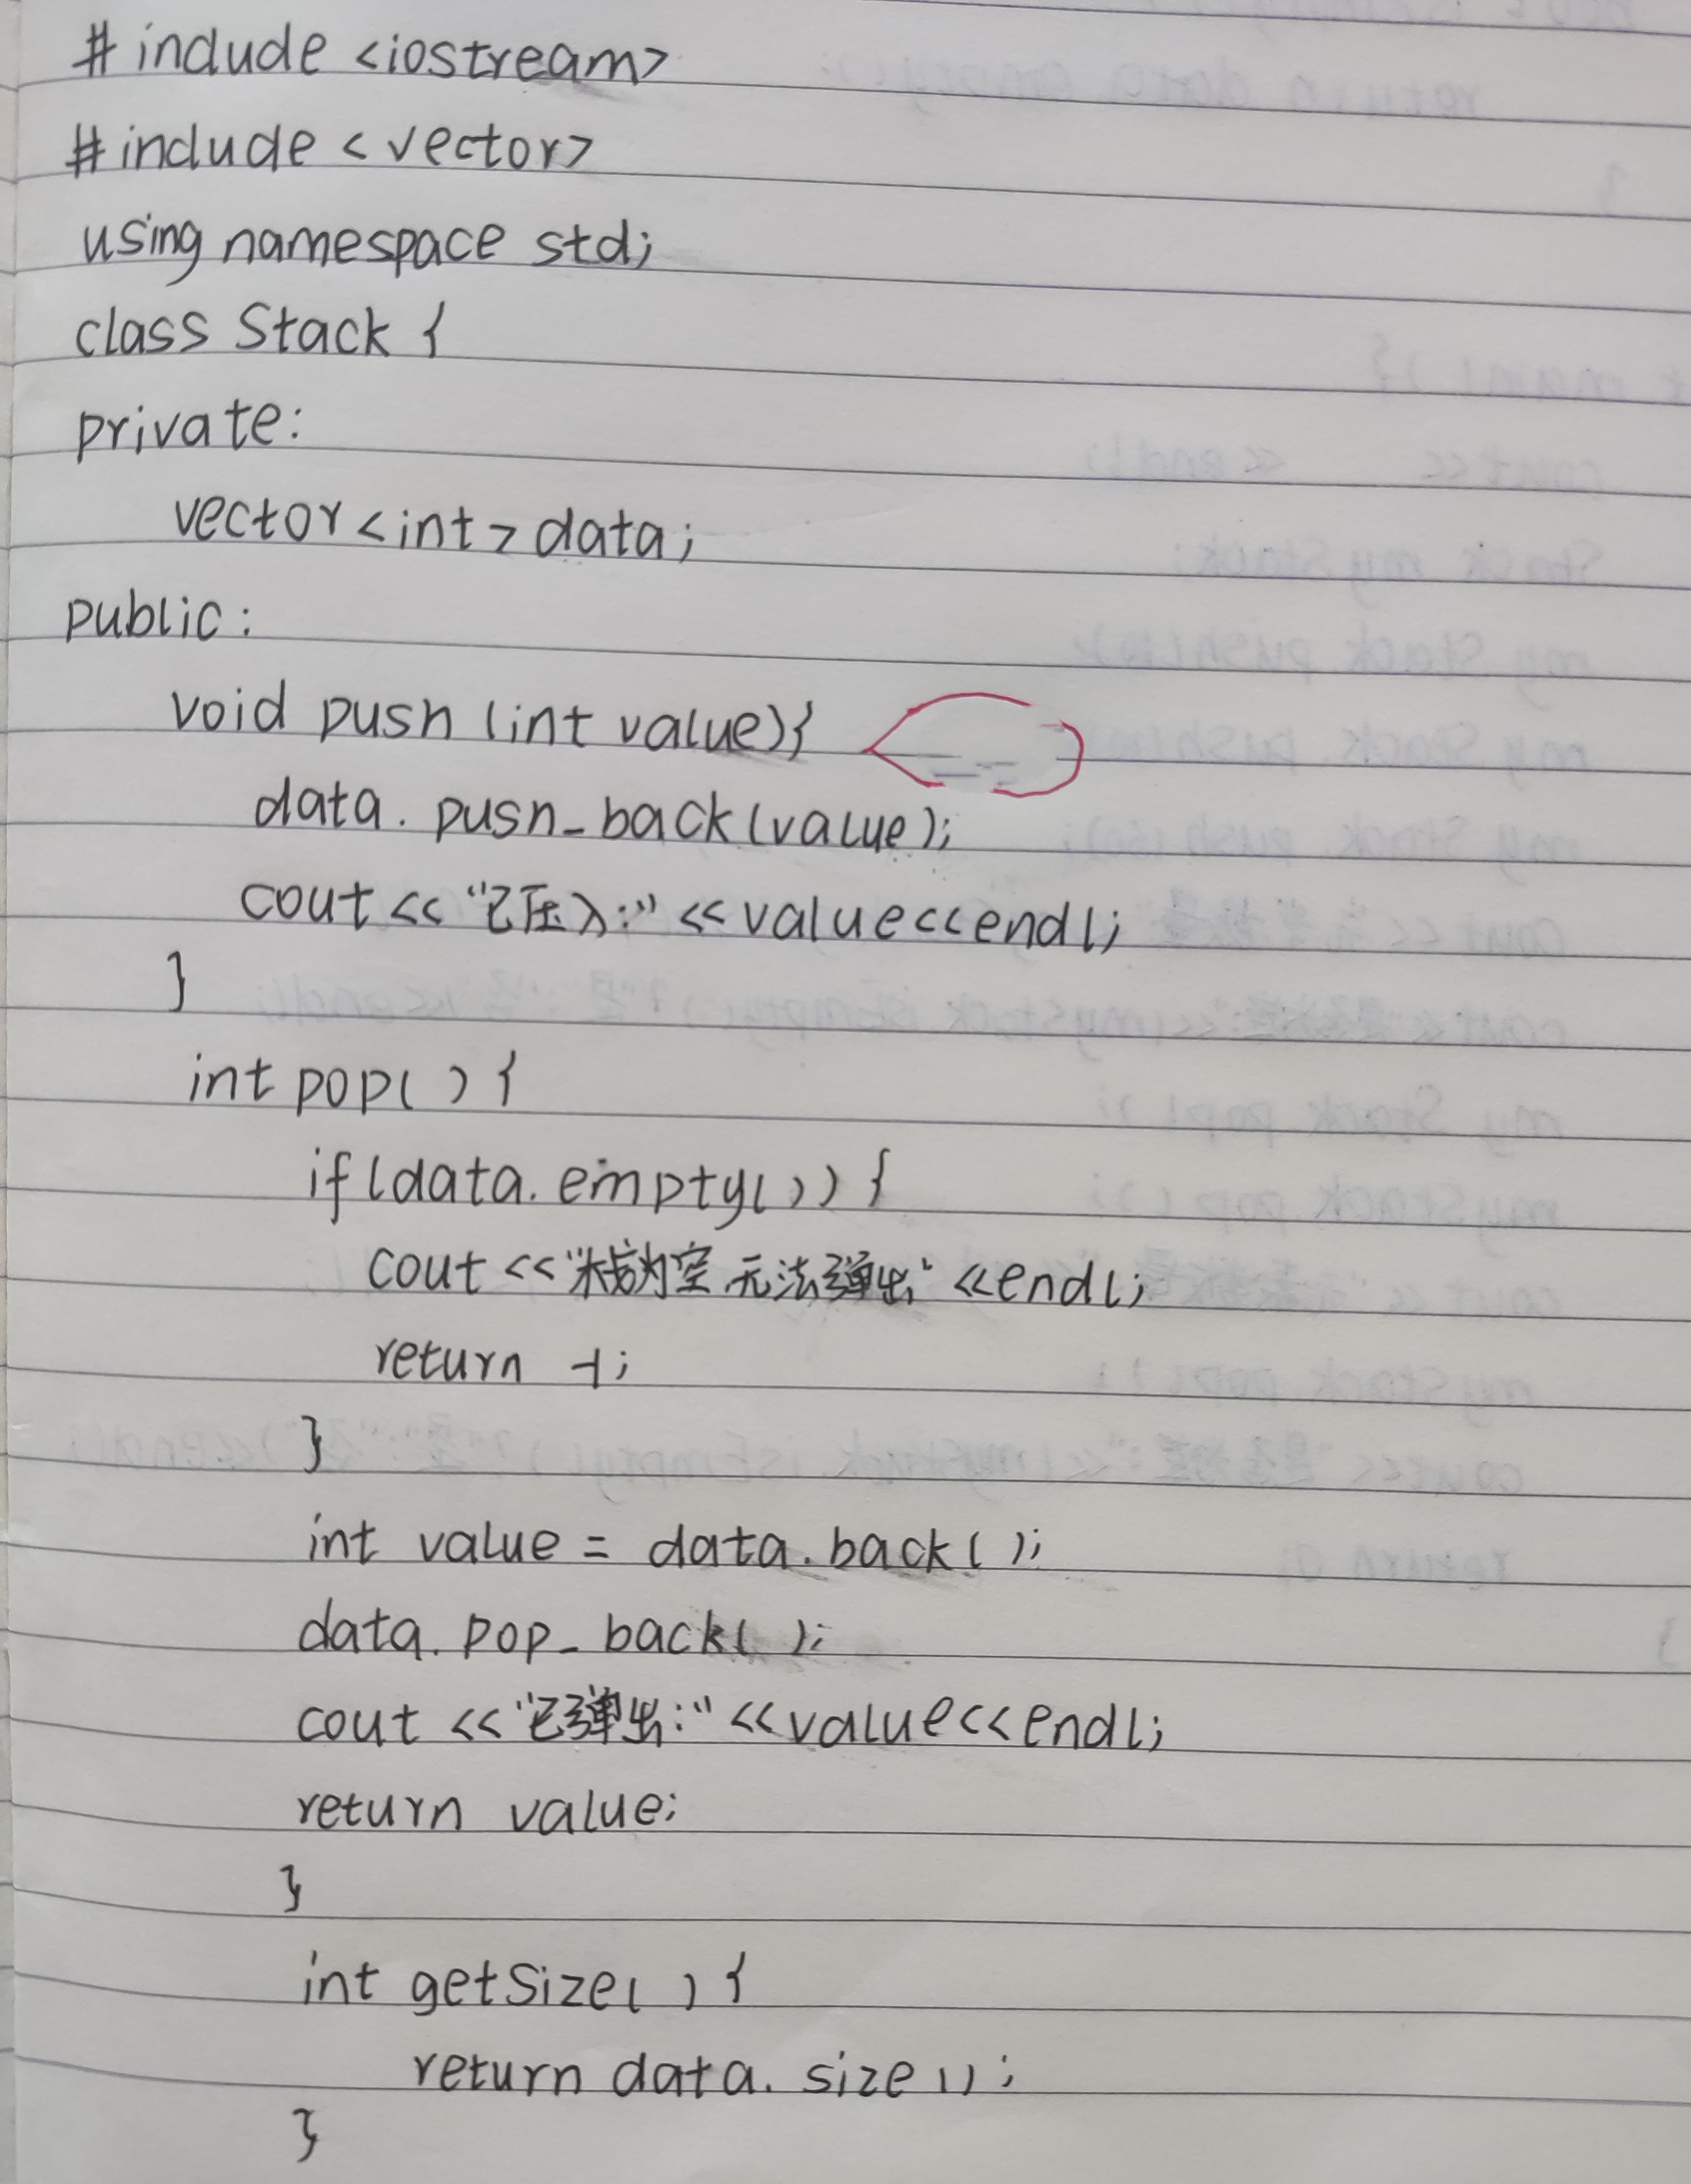 #include <iostream>
#include <vector>
using namespace std;
class Stack {
private:
vector<int> data;
public:
void push (int value){
data. push_back(value);
cout << "已压入:" << value<<endl;
}
int pop( ) {
if (data. empty( )) {
cout << "栈为空 无法弹出" <<endl;
return -1;
}
int value = data. back( );
data. pop_back( );
cout << "已弹出:" <<value<<endl;
return value;
}
int getSize( ) {
return data. size();
}